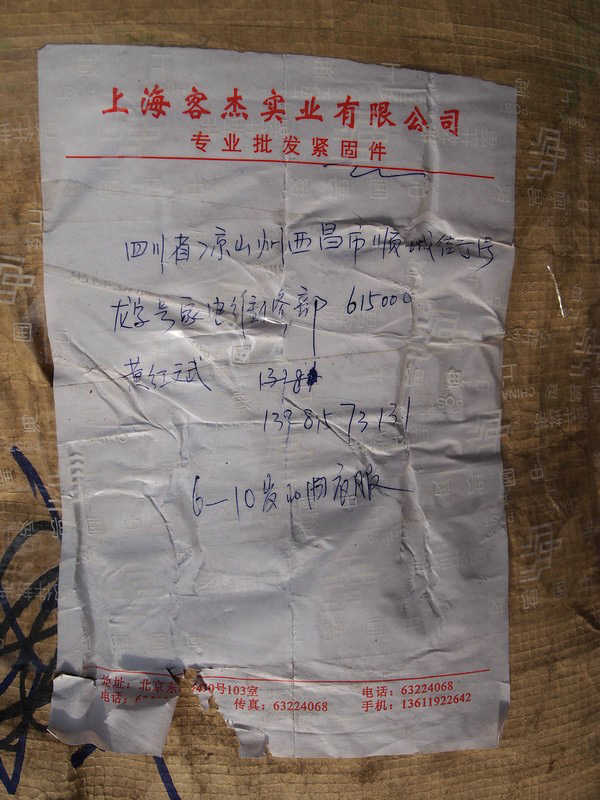 上海客杰实业有限公司
专业批发紧固件
四川省凉山州西昌市顺城街 号
家电维修部 615000
黄红武 1398
139815 73131
6—10岁的 衣服
地址：北京东 430号103室 电话：63224068
电话：6 传真：63224068 手机：13611922642